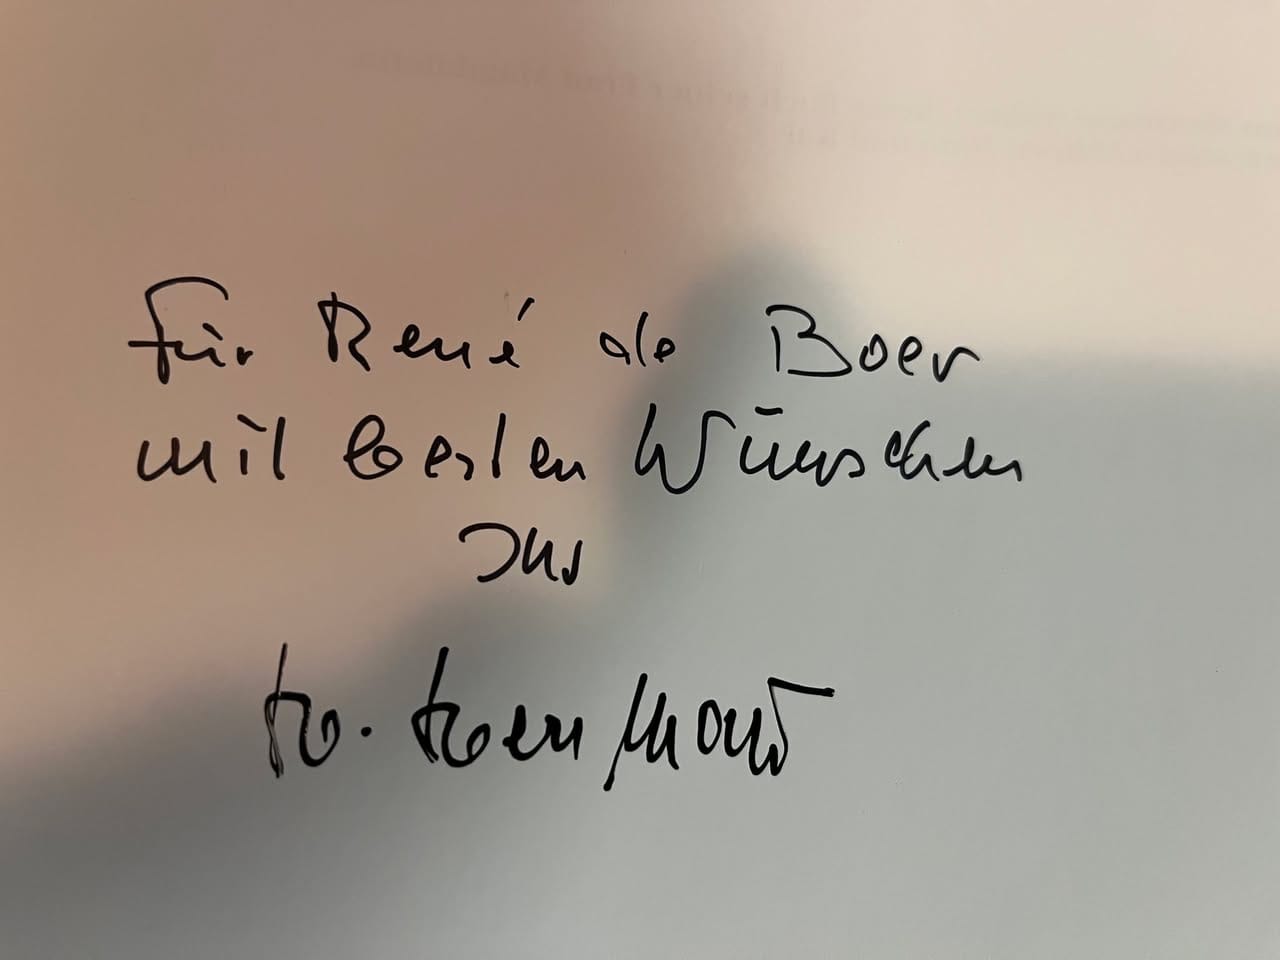 Für René de Boer
mit besten Wünschen
Ihr